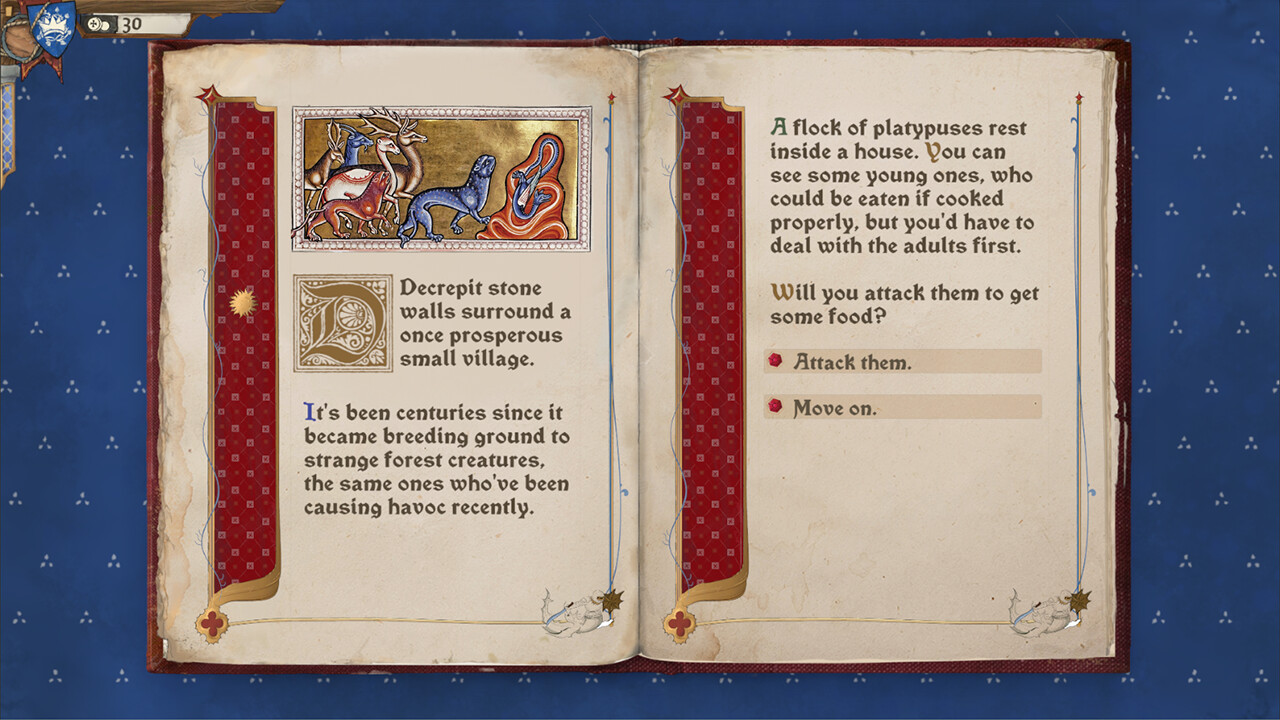 30
Decrepit stone
walls surround a
once prosperous
small village.
It's been centuries since it
became breeding ground to
strange forest creatures,
the same ones who've been
causing havoc recently.
A flock of platypuses rest
inside a house. You can
see some young ones, who
could be eaten if cooked
properly, but you'd have to
deal with the adults first.
Will you attack them to get
some food?
Attack them.
Move on.